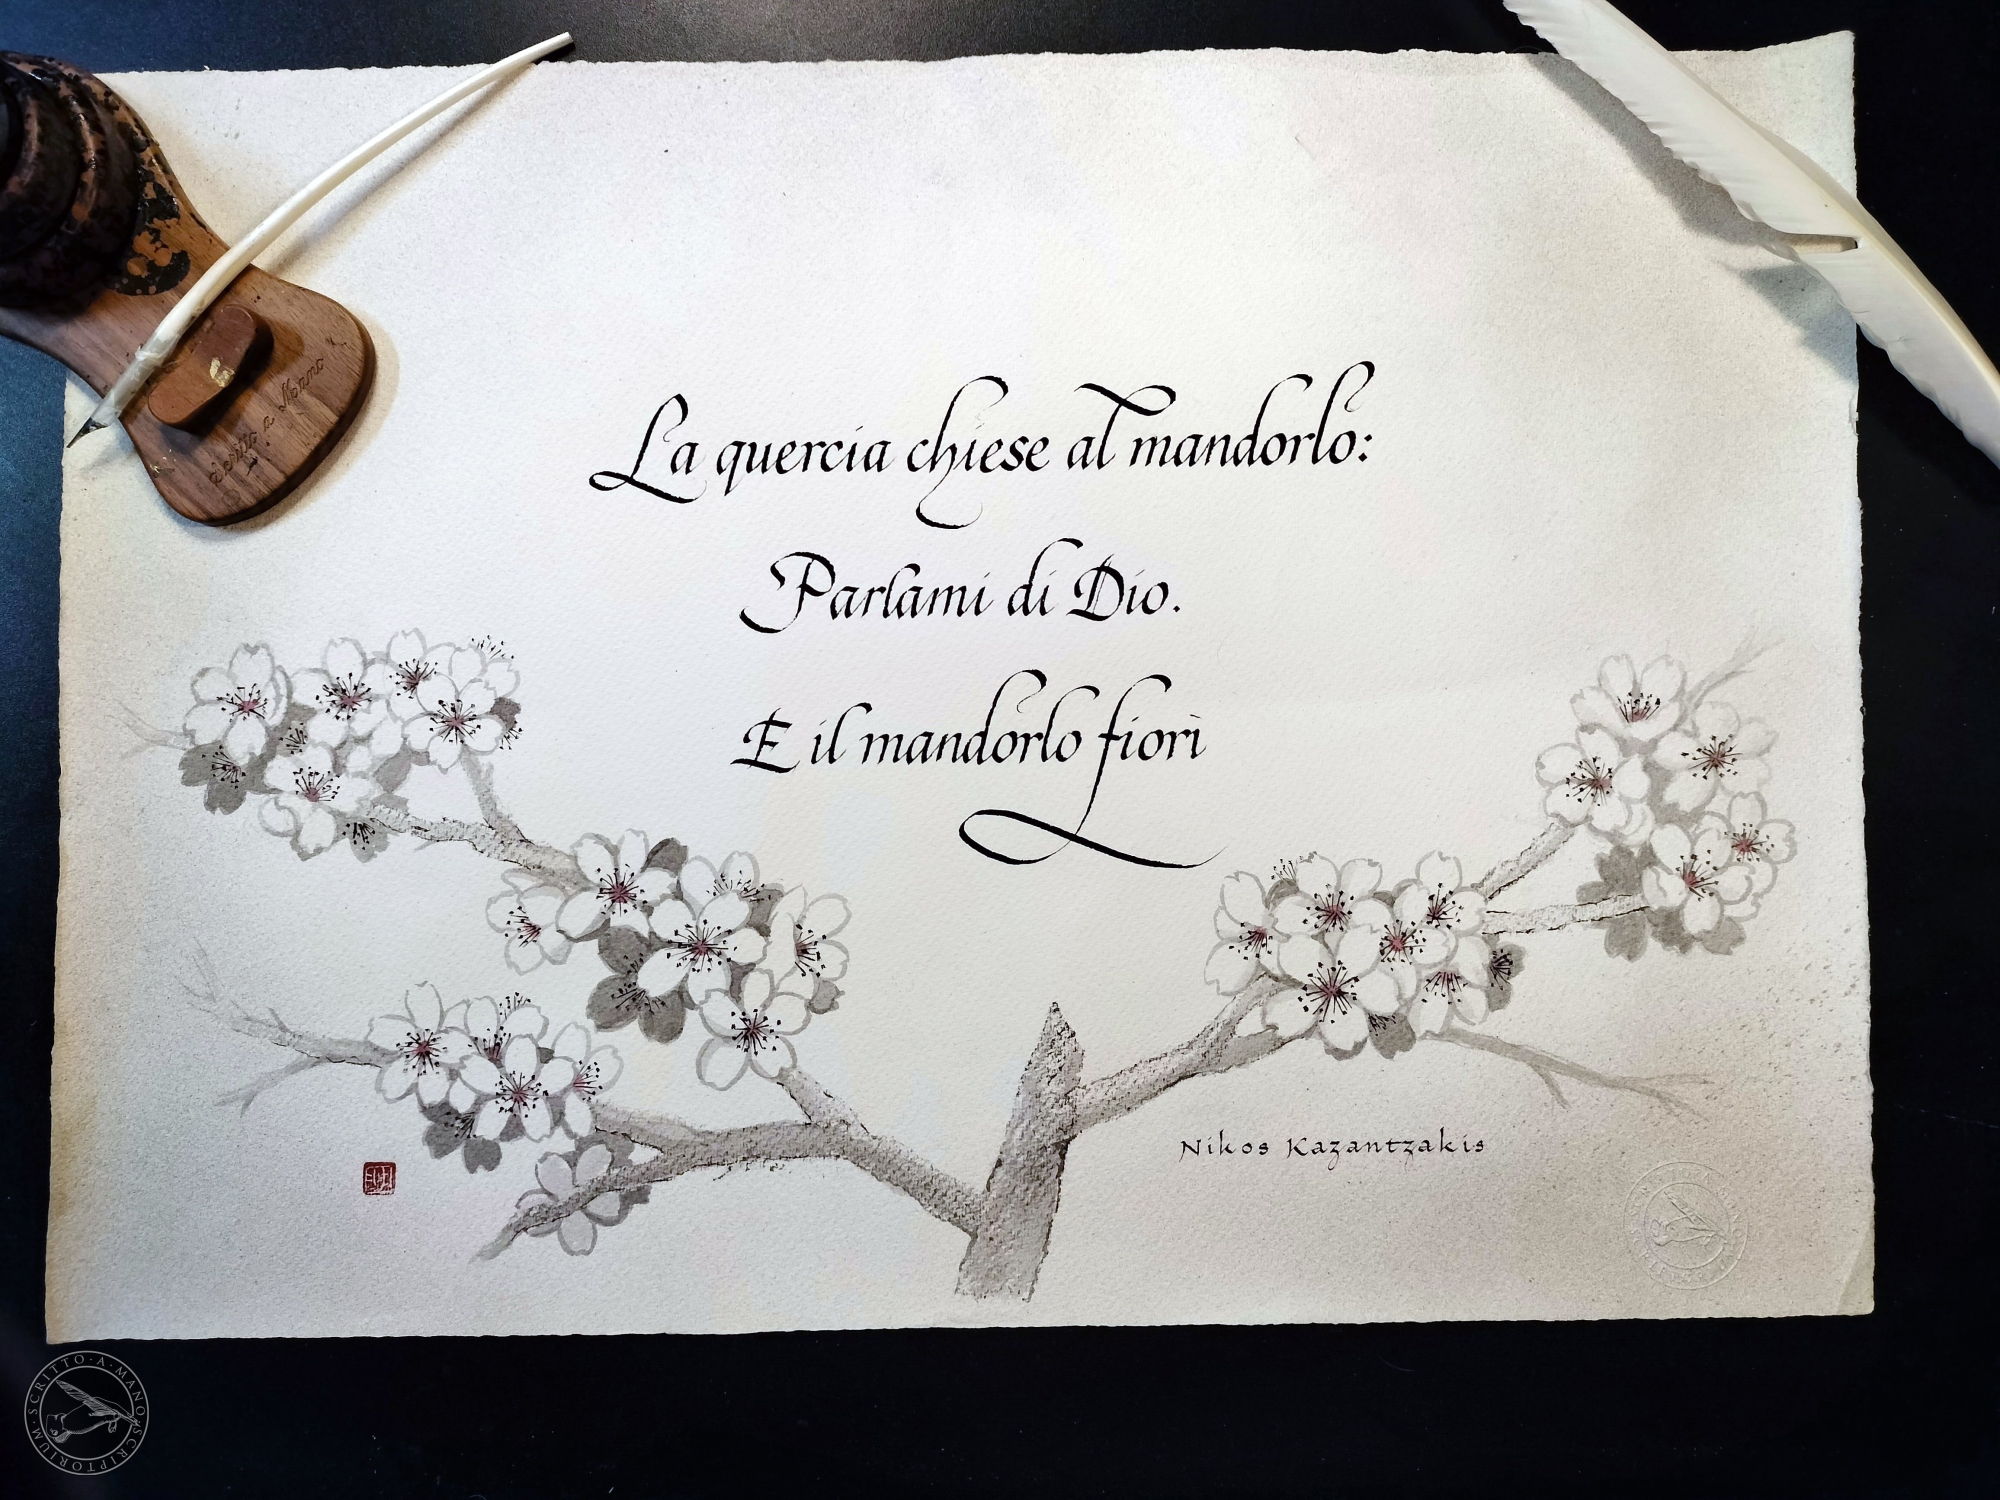 Scritto a Mano
La quercia chiese al mandorlo:
Parlami di Dio.
E il mandorlo fiorì
Nikos Kazantzakis
SCRITTO · A · MANO · SCRIPTORIUM ·